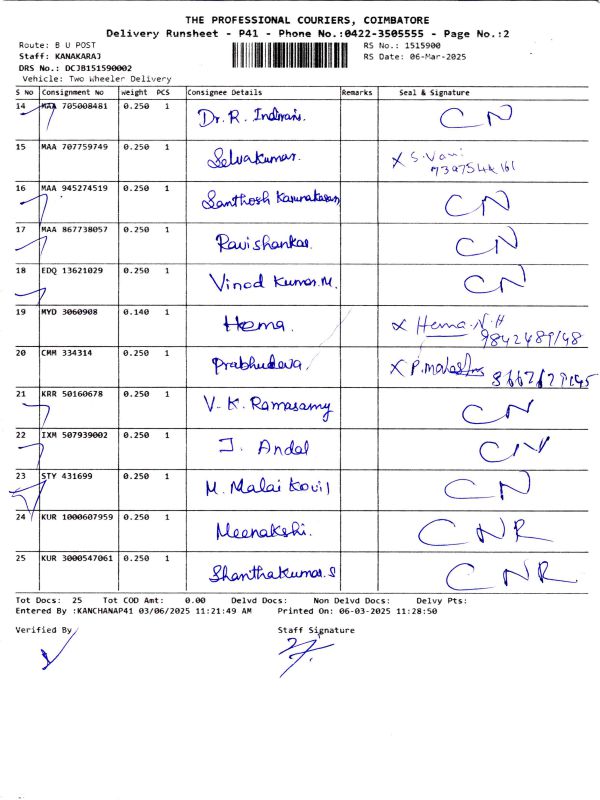 THE PROFESSIONAL COURIERS, COIMBATORE
Delivery Runsheet - P41 - Phone No.:0422-3505555 - Page No.:2
Route: B U POST RS No.: 1515900
Staff: KANAKARAJ RS Date: 06-Mar-2025
DRS No.: DCJB151590002
Vehicle: Two Wheeler Delivery
S No Consignment No Weight PCS Consignee Details Remarks Seal & Signature
14 MAA 705008481 0.250 1 Dr. R. Indrani. CN
15 MAA 707759749 0.250 1 Selvakumar. X S. Vani
16 MAA 945274519 0.250 1 Santhosh Karunakaran CN
17 MAA 867738057 0.250 1 Ravishankar. CN
18 EDQ 13621029 0.250 1 Vinod Kumar.M. CN
19 MYD 3060908 0.140 1 Hema. X Hema.N.H
9842489148
20 CMM 334314 0.250 1 Prabhudeva. X P.
21 KRR 50160678 0.250 1 V. K. Ramasamy CN
22 IXM 507939002 0.250 1 J. Andal CN
23 STY 431699 0.250 1 M. Malai Kovil CN
24 KUR 1000607959 0.250 1 Meenakshi. CNR
25 KUR 3000547061 0.250 1 Shanthakumar.S CNR
Tot Docs: 25 Tot COD Amt: 0.00 Delvd Docs: Non Delvd Docs: Delvy Pts:
Entered By :KANCHANAP41 03/06/2025 11:21:49 AM Printed On: 06-03-2025 11:28:50
Verified By Staff Signature